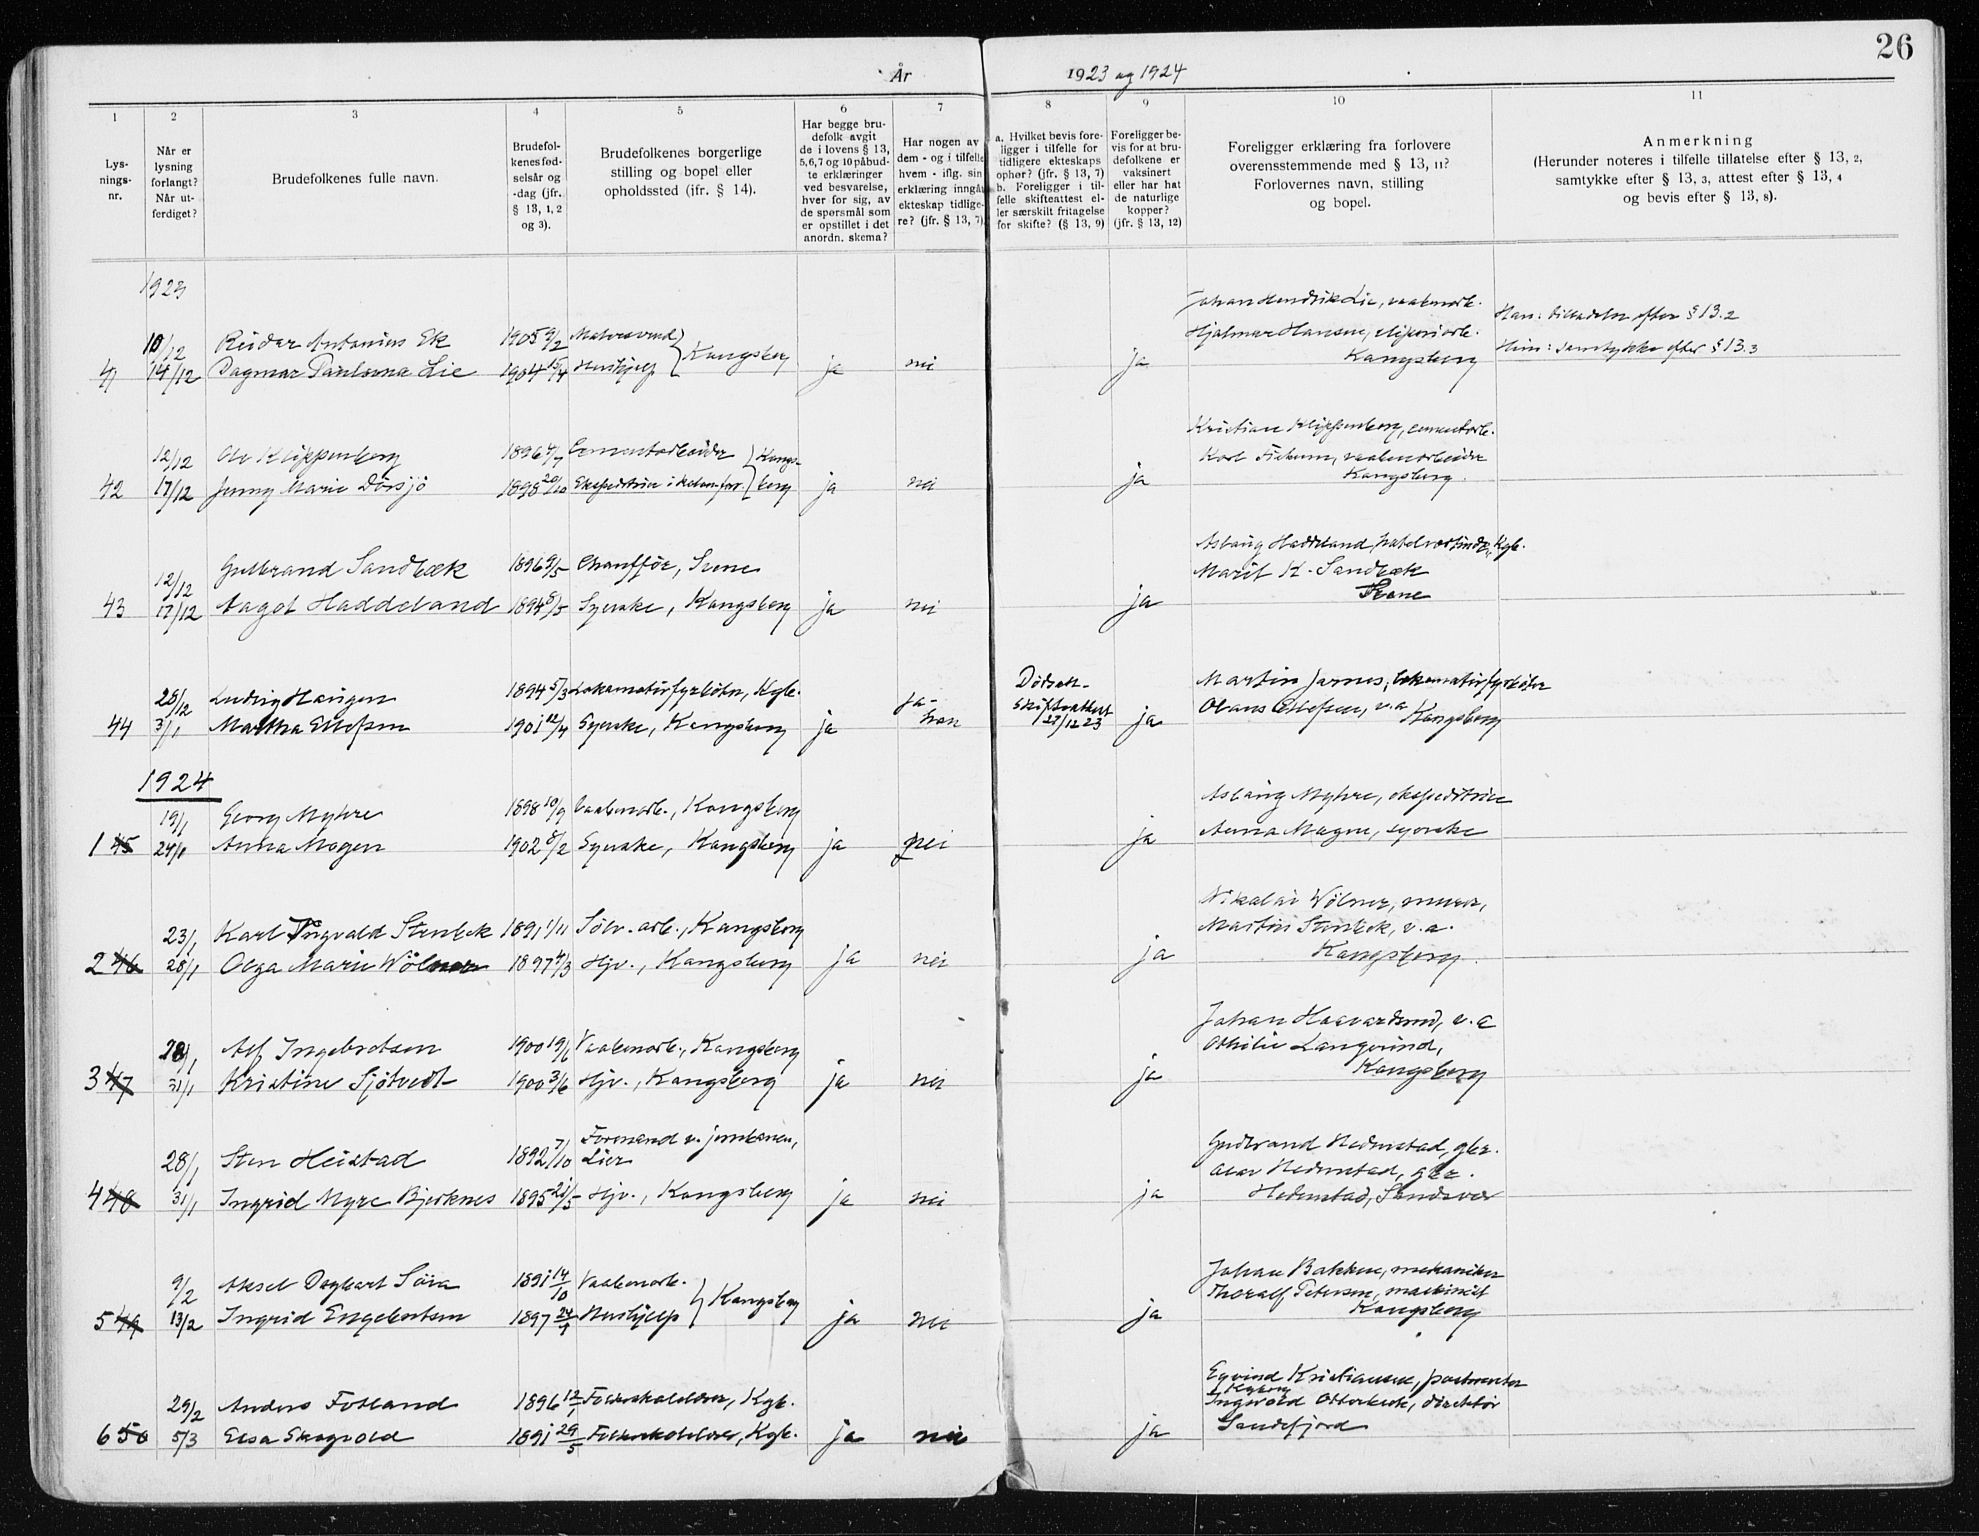 26
År 1923 og 1924
1 2 3 4 5 6 7 8 9 10 11
Lys-
nings-
nr.
Når er
lysning
forlangt?
Når ut-
ferdiget?
Brudefolkenes fulle navn.
Brudefol-
kenes fød-
selsår og
-dag (jfr.
§ 13, 1, 2
og 3).
Brudefolkenes borgerlige
stilling og bopel eller
opholdssted (jfr. § 14).
Har begge bru-
defolk avgit
de i lovens § 13,
5, 6, 7 og 10 påbud-
te erklæringer
ved besvarelse,
hver for sig, av
de spørsmål som
er opstillet i det
anordn. skema?
Har nogen av
dem - og i tilfelle
hvem - iflg. sin
erklæring inngåt
ekteskap tidlige-
re? (jfr. § 13, 7)
a. Hvilket bevis fore-
ligger i tilfelle for
tidligere ekteskaps
ophør? (jfr. § 13, 7)
b. Foreligger i til-
felle skifteattest el-
ler særskilt fritagelse
for skifte? (§ 13, 9)
Foreligger be-
vis for at bru-
defolkene er
vaksinert
eller har hat
de naturlige
kopper?
(jfr. § 13, 12)
Foreligger erklæring fra forlovere
overensstemmende med § 13, 11?
Forlovernes navn, stilling
og bopel.
Anmerkning
(Herunder noteres i tilfelle tillatelse efter § 13, 2,
samtykke efter § 13, 3, attest efter § 13, 4
og bevis efter § 13, 8).
1923
Johan Hendrik Lie, vaabenarb.
10/12 Reidar Antonius Ek 1905 9/2 Hjalmar Hansen, Han: tilladelse efter § 13.2
41 14/12 Dagmar Paulovna Lie 1904 15/4 Hushjelp Kongsberg ja nei ja Kongsberg Hun: samtykke efter § 13.3
Kristian Klippenberg, cementarb.
12/12 Ole Klippenberg 1896 4/7 Cementarbeider Karl vaabenarbeider
42 17/12 Jenny Marie Dørsjø 1898 20/10 Ekspeditrice i Kolon.forr. Kongsberg ja nei ja Kongsberg
Aslaug Haddeland, Kgb.
12/12 Gulbrand Sandbæk 1896 9/5 Chauffør, Svene Marit K. Sandbæk
43 17/12 Aagot Haddeland 1894 8/5 Syerske, Kongsberg ja nei ja Svene
28/12 Ludvig Haugen 1894 5/3 Lokomotivfyrbøter, Kgb. ja - Martin Jarnes, lokomotivfyrbøter
44 3/1 Martha Ellefsen 1901 12/4 Syerske, Kongsberg ja han Skifteattest 27/12 23 ja Olaus Ellefsen, v.a Kongsberg
1924
19/1 Georg Myhre 1898 10/9 Vaabenarb., Kongsberg Aslaug Myhre, ekspeditrice
1 45 24/1 Anna Mogen 1902 8/2 Syerske, Kongsberg ja nei ja Anna Mogen, syerske
Nikolai Wölner, murer,
23/1 Karl Ingvald Stenbek 1891 1/11 Sølv.arb., Kongsberg Martin Stenbek, v.a.
2 46 28/1 Olga Marie Wölner 1897 4/3 Hjv., Kongsberg ja nei ja Kongsberg
Johan Haavardsrud, v.a
28/1 Alf Ingebretsen 1900 19/6 Vaabenarb., Kongsberg Othilie Langerind,
3 47 31/1 Kristine Sjøtvedt 1900 3/6 Hjv., Kongsberg ja nei ja Kongsberg
Formand v. jernbanen, Gudbrand Hedenstad, gbr.
28/1 Sten Heistad 1892 7/10 Lier Olav Hedenstad, gbr.
4 48 31/1 Ingrid Myre Bjerknes 1895 21/5 Hjv., Kongsberg ja nei ja Hedenstad, Sandsvær
9/2 Aksel Dagbart Søia 1891 14/10 Vaabenarb. Johan Bakken, mekaniker
Thoralf Petersen, maskinist
5 49 13/2 Ingrid Engebretsen 1897 Hushjelp Kongsberg ja nei ja Kongsberg
Eyvind Kristiansen, postmester
29/2 Anders Fotland 1896 12/1 Folkeskolelærer, Kgb. Ingvald Otterbeck, direktør
6 50 5/3 Elsa Skogvold 1891 29/5 Folkeskolelærer, Kgb. ja nei ja Sandefjord